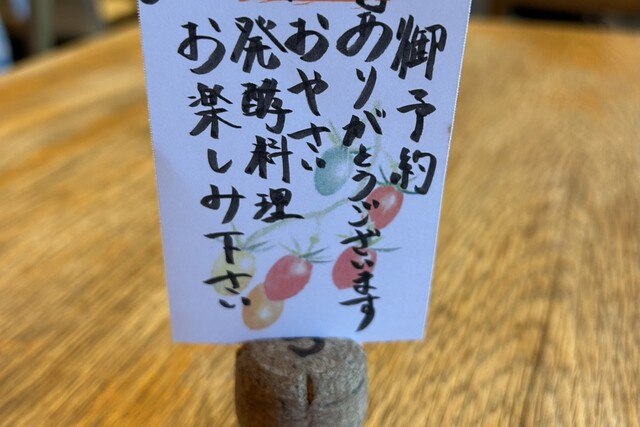 御予約
ありがとうございます
おやさい
発酵料理
お楽しみ下さい